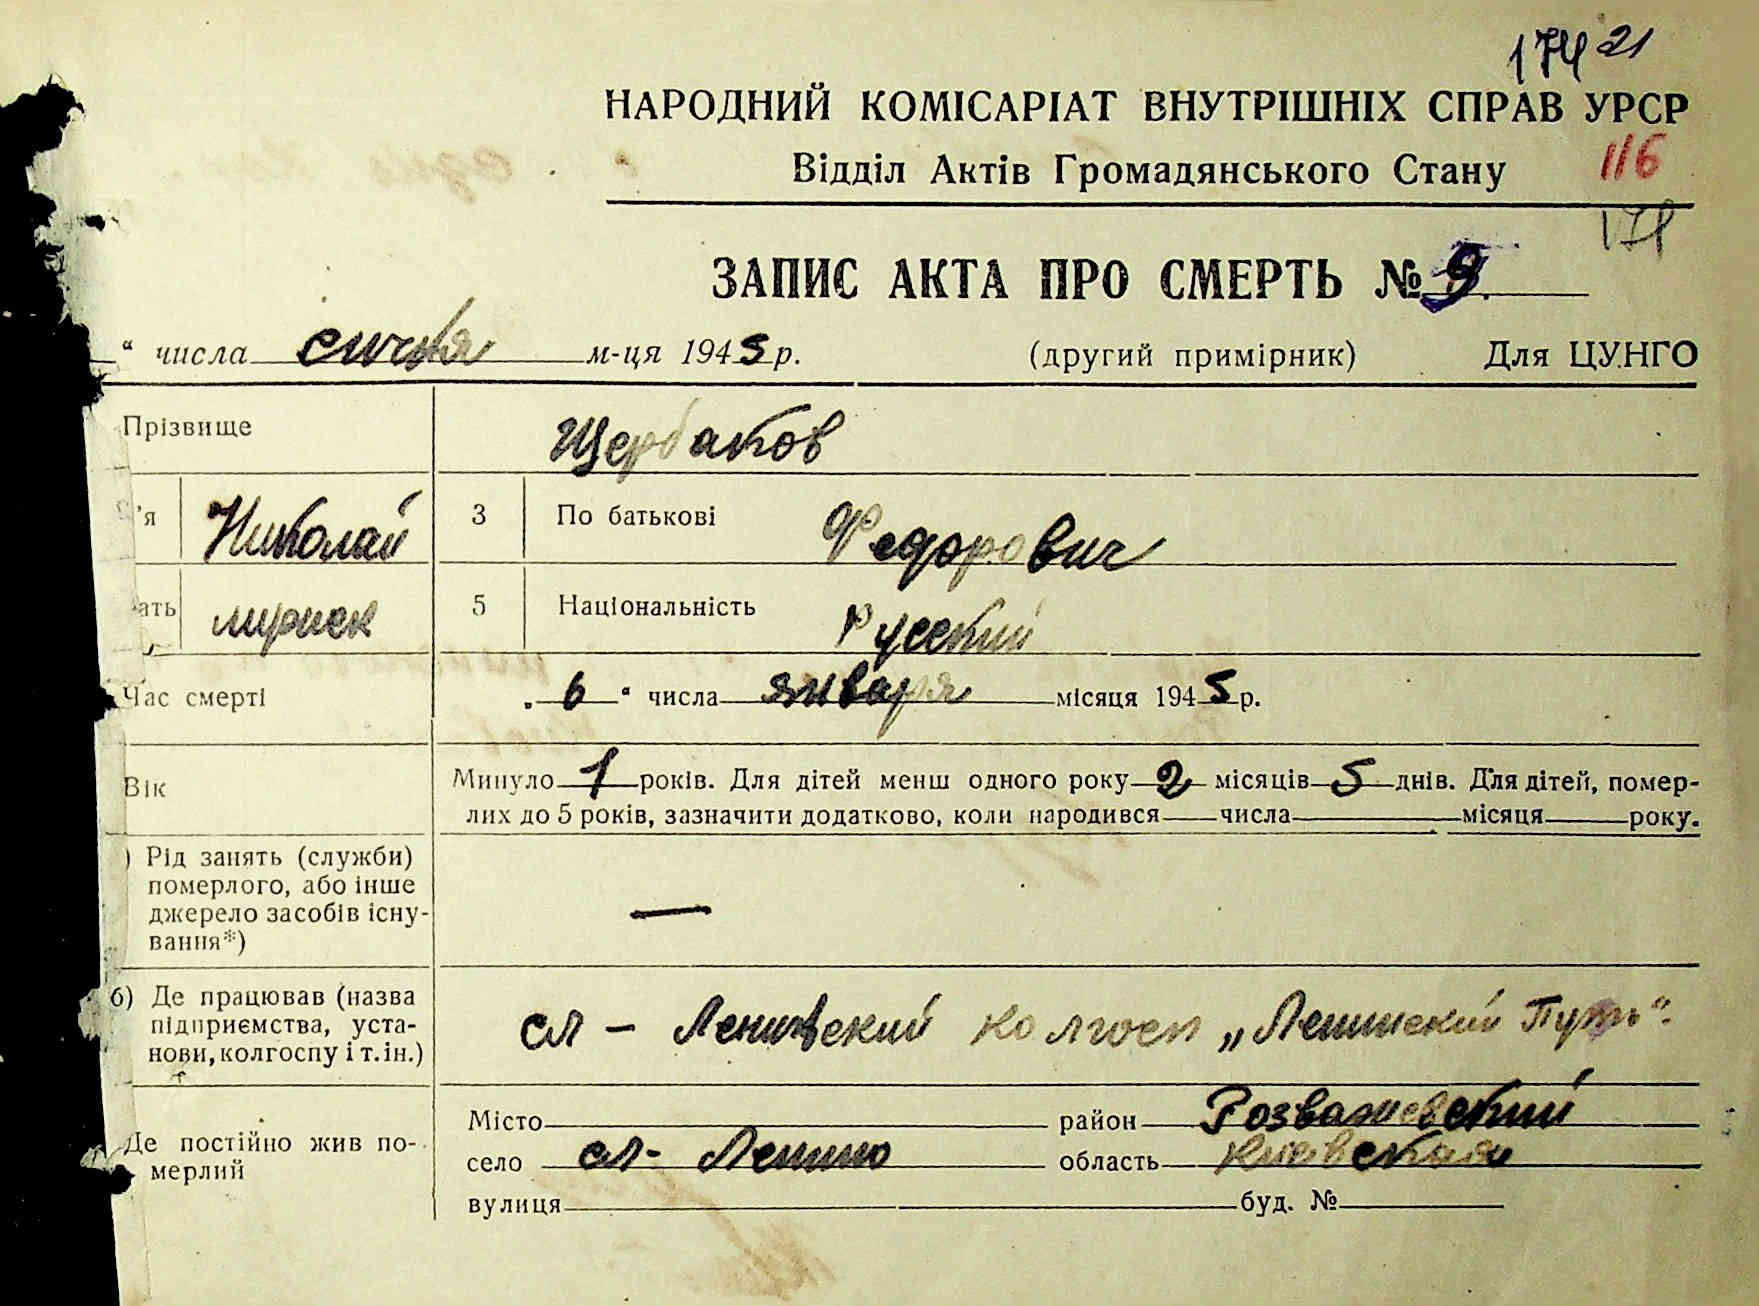 174 21
НАРОДНИЙ КОМІСАРІАТ ВНУТРІШНІХ СПРАВ УРСР
Відділ Актів Громадянського Стану 116
174
ЗАПИС АКТА ПРО СМЕРТЬ № 9
“ числа січня м-ця 1945 р. (другий примірник) Для ЦУНГО
Прізвище Щербаков
'я Николай 3 По батькові Федорович
ать 5 Національність Русский
Час смерті 6 “ числа января місяця 1945 р.
Вік Минуло 1 років. Для дітей менш одного року 2 місяців 5 днів. Для дітей, помер-
лих до 5 років, зазначити додатково, коли народився числа місяця року.
) Рід занять (служби)
померлого, або інше
джерело засобів існу-
вання*) —
б) Де працював (назва
підприємства, уста-
нови, колгоспу і т. ін.) сл - Ленинский колгосп „Ленинский Путь“
Де постійно жив по-
мерлий
Місто район Розважевский
село сл- Ленино область Киевская
вулиця буд. №